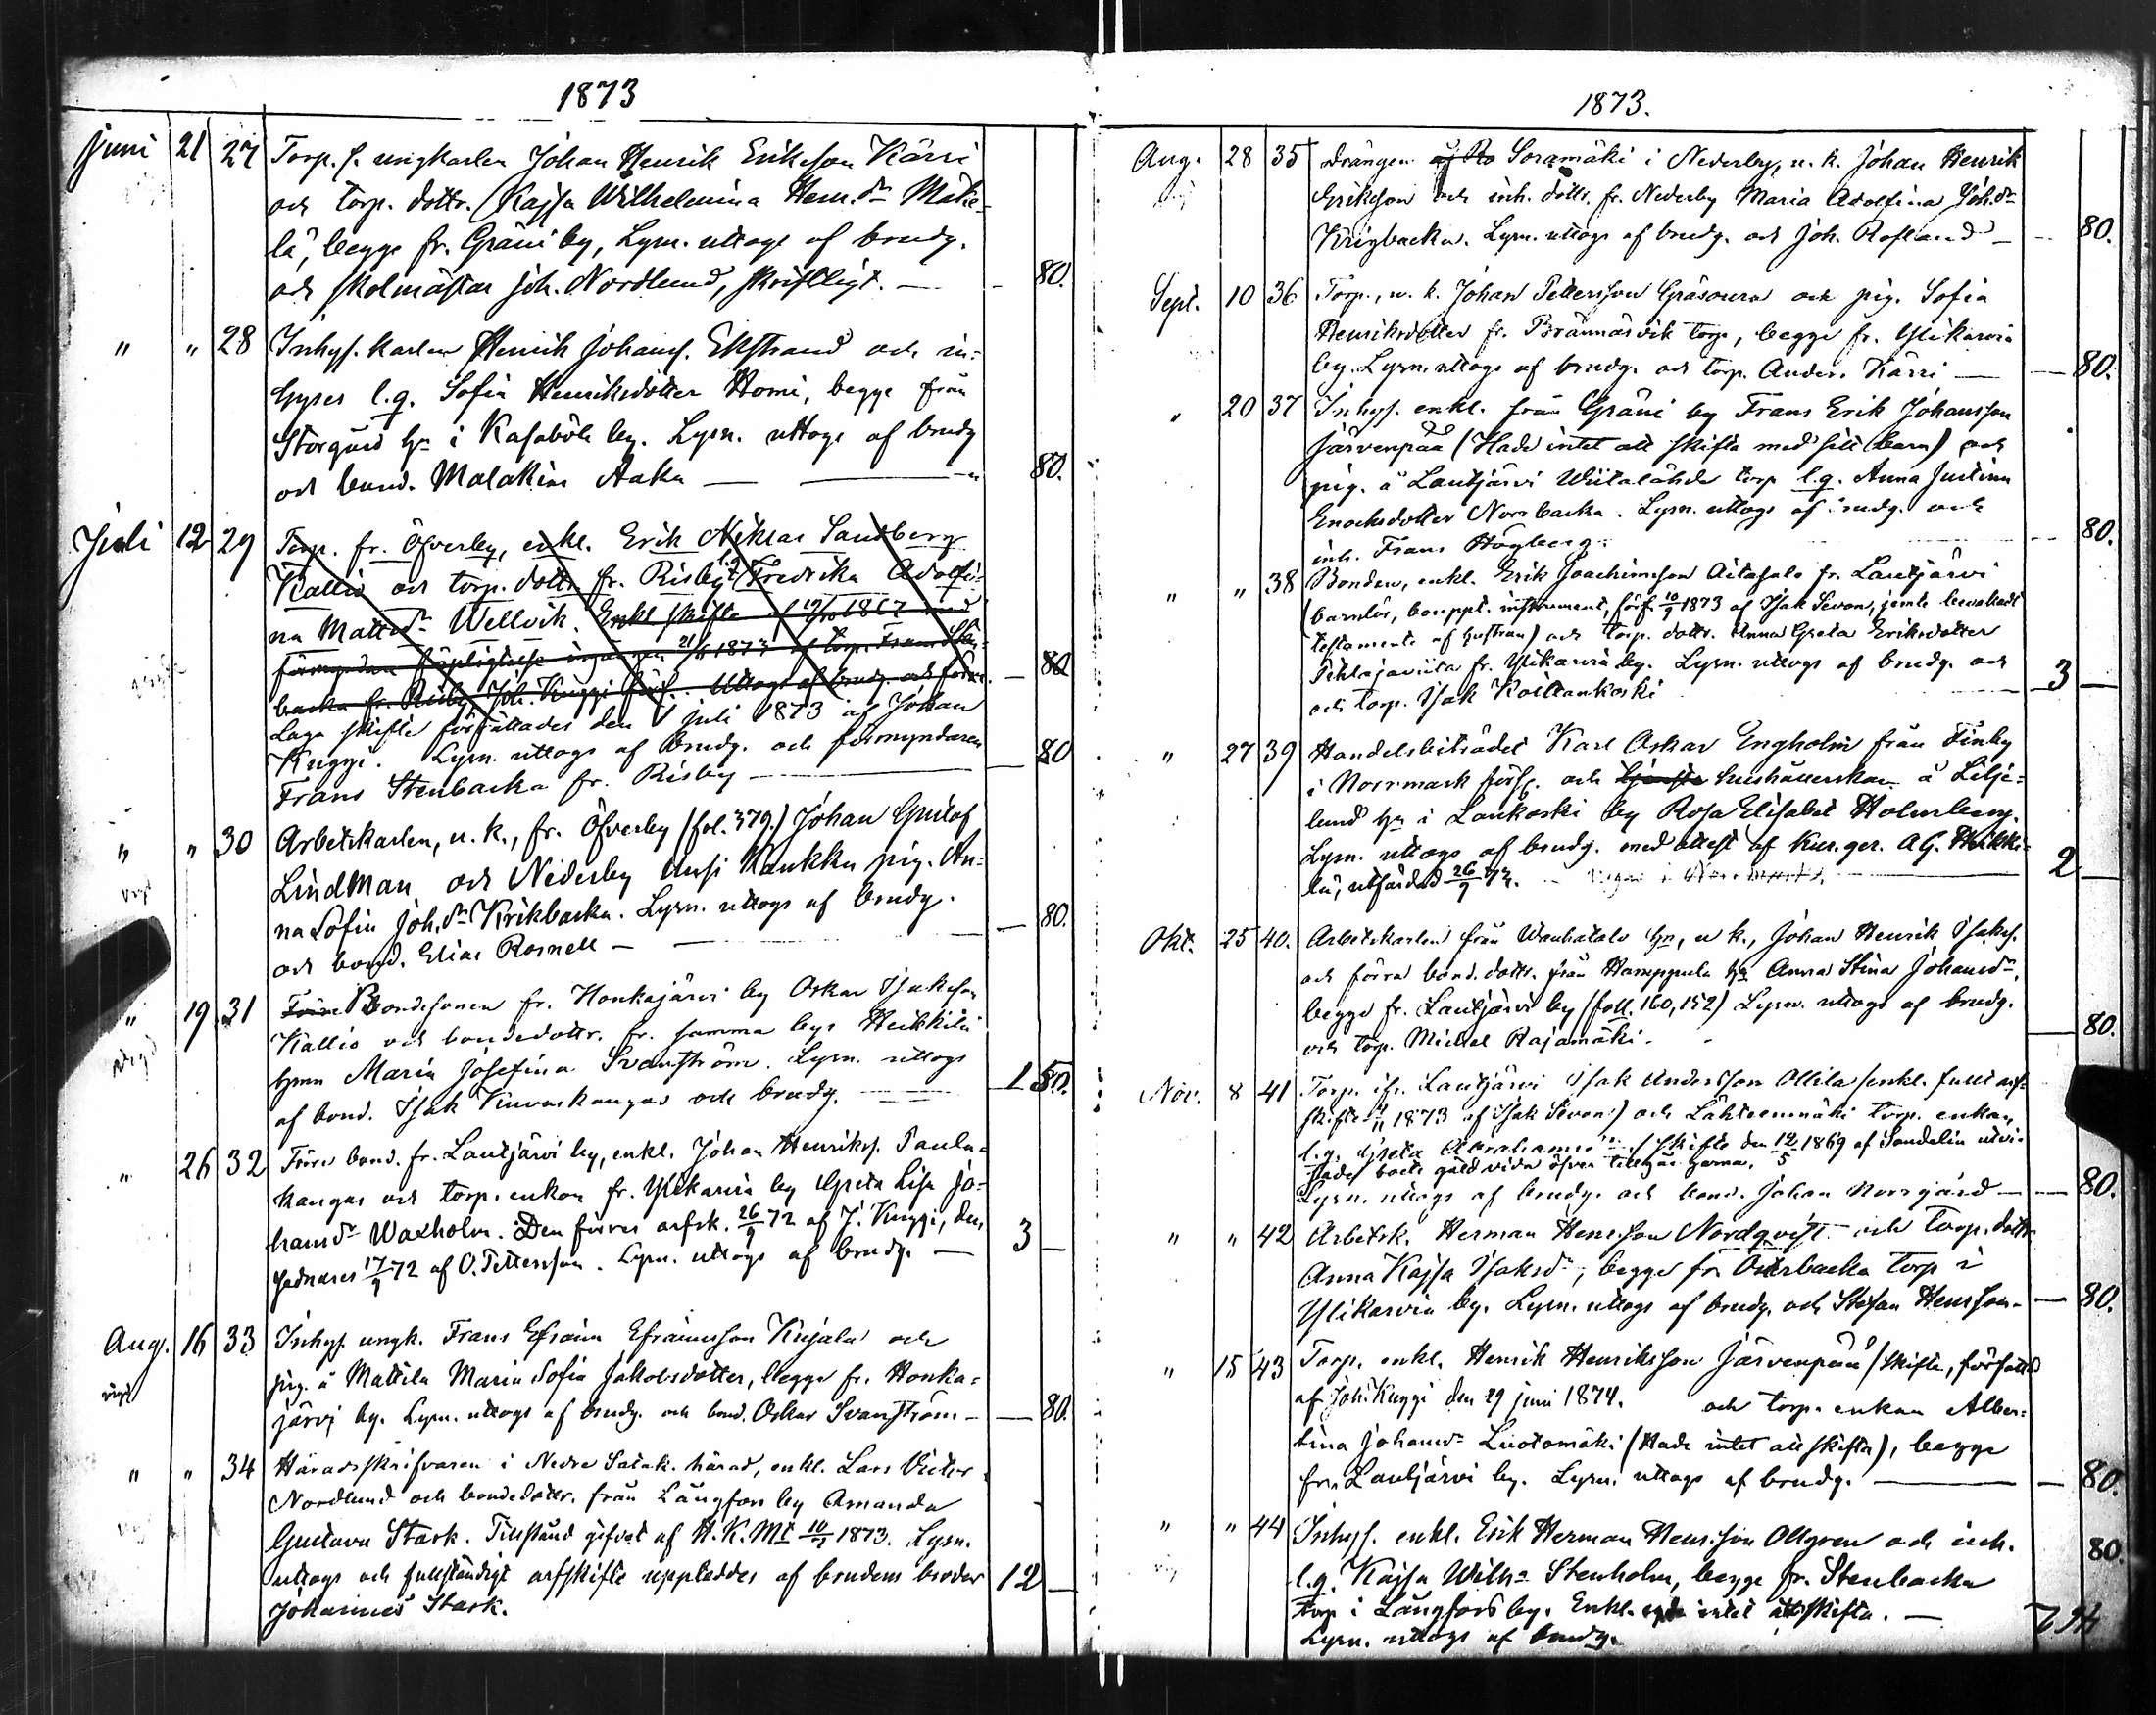 1873
juni 21 27 Torp. s. ungkarlen Johan Henrik Erikson Kärri
och torp. dottr. Kajsa Wilhelmina Hem.dr Mäke-
lä, begge fr. Gräni by, Lysn. uttogs af brudg.
och skolmästar Joh. Nordlund, skriftligt. — 80.
" " 28 Inhys. karlen Henrik Johans. Ekstrand och in-
hyses l.q. Sofia Henriksdotter Homi, begge från
Storgård hn i Kasaböle by. Lysn. uttogs af brudg
och bond. Malakias Aaku — 80.
Juli 12 29 Torp. fr. Öfverby, enkl. Erik Niklas Sandberg
Kallio och torp. dottr. fr. Risby l.q. Fredrika Adolfi-
na Mattsdr Wellvik. Enkl skifte af 19/10 1867 med
förmyndare förpligtelse ingången 21/6 1873 af torp. Frans Sten-
backa fr. Risby, Joh. Kuggi förf. Uttogs af brudg. och förm. — 80
Laga skifte författades den 1 juli 1873 af Johan
Kuggi. Lysn. uttogs af brudg. och förmyndaren
Frans Stenbacka fr. Risby — 80
" " 30 Arbetskarlen, u. k., fr. Öfverby (fol. 379.) Johan Gustaf
Lindman och Nederby Ansi Kaukku pig. An-
na Sofia Joh.dr Krikbacka. Lysn. uttogs af brudg.
och bond. Elias Rosnell — 80.
" 19 31 Förre Bondesonen fr. Honkajärvi by Oskar Isakson
Kallio och bondedottr. fr. samma bys Heikkilä
hmn Maria Josefina Svanström. Lysn. uttogs
af bond. Isak Kuvaskangas och brudg. — 1 80.
" 26 32 Förre bond. fr. Lautjärvi by, enkl. Johan Henriks. Paula-
kangas och torp. enkan fr. Ylikarvia by Greta Lisa Jo-
hansdr Waxholm. Den förres arfsk. 26/9 72 af J. Kuggi, den
sednares 17/9 72 af O. Pettersson. Lysn. uttogs af brudg. — 3 —
Aug. 16 33 Inhys. ungk. Frans Efraim Efraimsson Kujala och
pig. å Mattila Maria Sofia Jakobsdotter, begge fr. Honka-
järvi by. Lysn. uttogs af brudg. och bond. Oskar Svanström — 80.
" " 34 Häradsskrifvaren i Nedre Satak. härad, enkl. Lars Victor
Nordlund och bondedottr. från Långfors by Amanda
Gustava Stark. Tillstånd gifvet af H.K.Mt 10/7 1873. Lysn.
uttogs och fullständigt arfskifte uppleddes af brudens broder 12 —
Johannes Stark.
1873.
Aug. 28 35 Drängen å Ro Soramäki i Nederby, u. k. Johan Henrik
Erikson och inh. dottr. fr. Nederby Maria Adolfina Joh.dr
Krigbacka. Lysn. uttogs af brudg. och Joh. Rosland — 80.
Sept. 10 36 Torp., u. k. Johan Pettersson Gräsoura och pig. Sofia
Henriksdotter fr. Brännäsvik torp, begge fr. Ylikarvia
by. Lysn. uttogs af brudg. och torp. Anders Kärri — 80.
" 20 37 Inhys. enkl. från Gräni by Frans Erik Johansson
Järvenpää (Hade intet att skifta med sitt barn) och
pig. å Lautjärvi Wiitalähde torp l.q. Anna Justina
Enochsdotter Norrbacka. Lysn. uttogs af brudg. och
inh. Frans Högberg. 80.
" " 38 Bonden, enkl. Erik Joachimsson Aitasalo fr. Lautjärvi
(barnlös, bouppt. instrument, förf. 10/9 1873 af Isak Sevon, jemte bevakadt
testamente af hustrun) och torp. dottr. Anna Greta Eriksdotter
Pihlajaviita fr. Ylikarvia by. Lysn. uttogs af brudg. och
och torp. Isak Koittankoski 3 —
" 27 39 Handelsbiträdet Karl Oskar Engholm från Finby
i Norrmark förs. och hushållerskan å Lilje-
lund hn i Lankoski by Rosa Elisabet Holmberg.
Lysn. uttogs af brudg. med attest af Kur. ger. A.G. Heikki-
lä, utfärdad 26/9 73. — 2 —
Okt. 25 40. Arbetskarlen från Wanhatalo hn, u k., Johan Henrik Isaks.
och förra bond. dottr. från Hamppula hn Anna Stina Johansdr,
begge fr. Lautjärvi by (foll. 160, 152) Lysn. uttogs af brudg.
och torp. Mickel Rajamäki. — 80.
Nov. 8 41 Torp. fr. Lautjärvi Isak Andersson Ollila (enkl. full arf-
skifte 1873 af Isak Sevon) och Lähteenmäki torp. enkan,
l.q. Greta Abrahamsdr / skifte den 12/5 1869 af Sandelin utvi-
sade boets gäld vida öfver tillgångarna.
Lysn. uttogs af brudg. och bond. Johan Norrgård — 80.
" " 42 Arbetsk. Herman Henrsson Nordqvist och torp. dottr
Anna Kajsa Isaksdr, begge fr. Österbacka torp i
Ylikarvia by. Lysn. uttogs af brudg. och Stefan Hensson — 80.
" 15 43 Torp. enkl. Henrik Henriksson Järvenpää (skifte, författadt
af Joh. Kuggi den 29 juni 1874. och torp. enkan Alber-
tina Johansdr Luotomäki (Hade intet att skifta), begge
fr. Lautjärvi by. Lysn. uttogs af brudg. — 80.
" " 44 Inhys. enkl. Erik Herman Hensson Ollgren och inh.
l.q. Kajsa Wilh.a Stenholm, begge fr. Stenbacka 80.
torp i Långfors by. Enkl. egde intet att skifta. —
Lysn. uttogs af brudg.